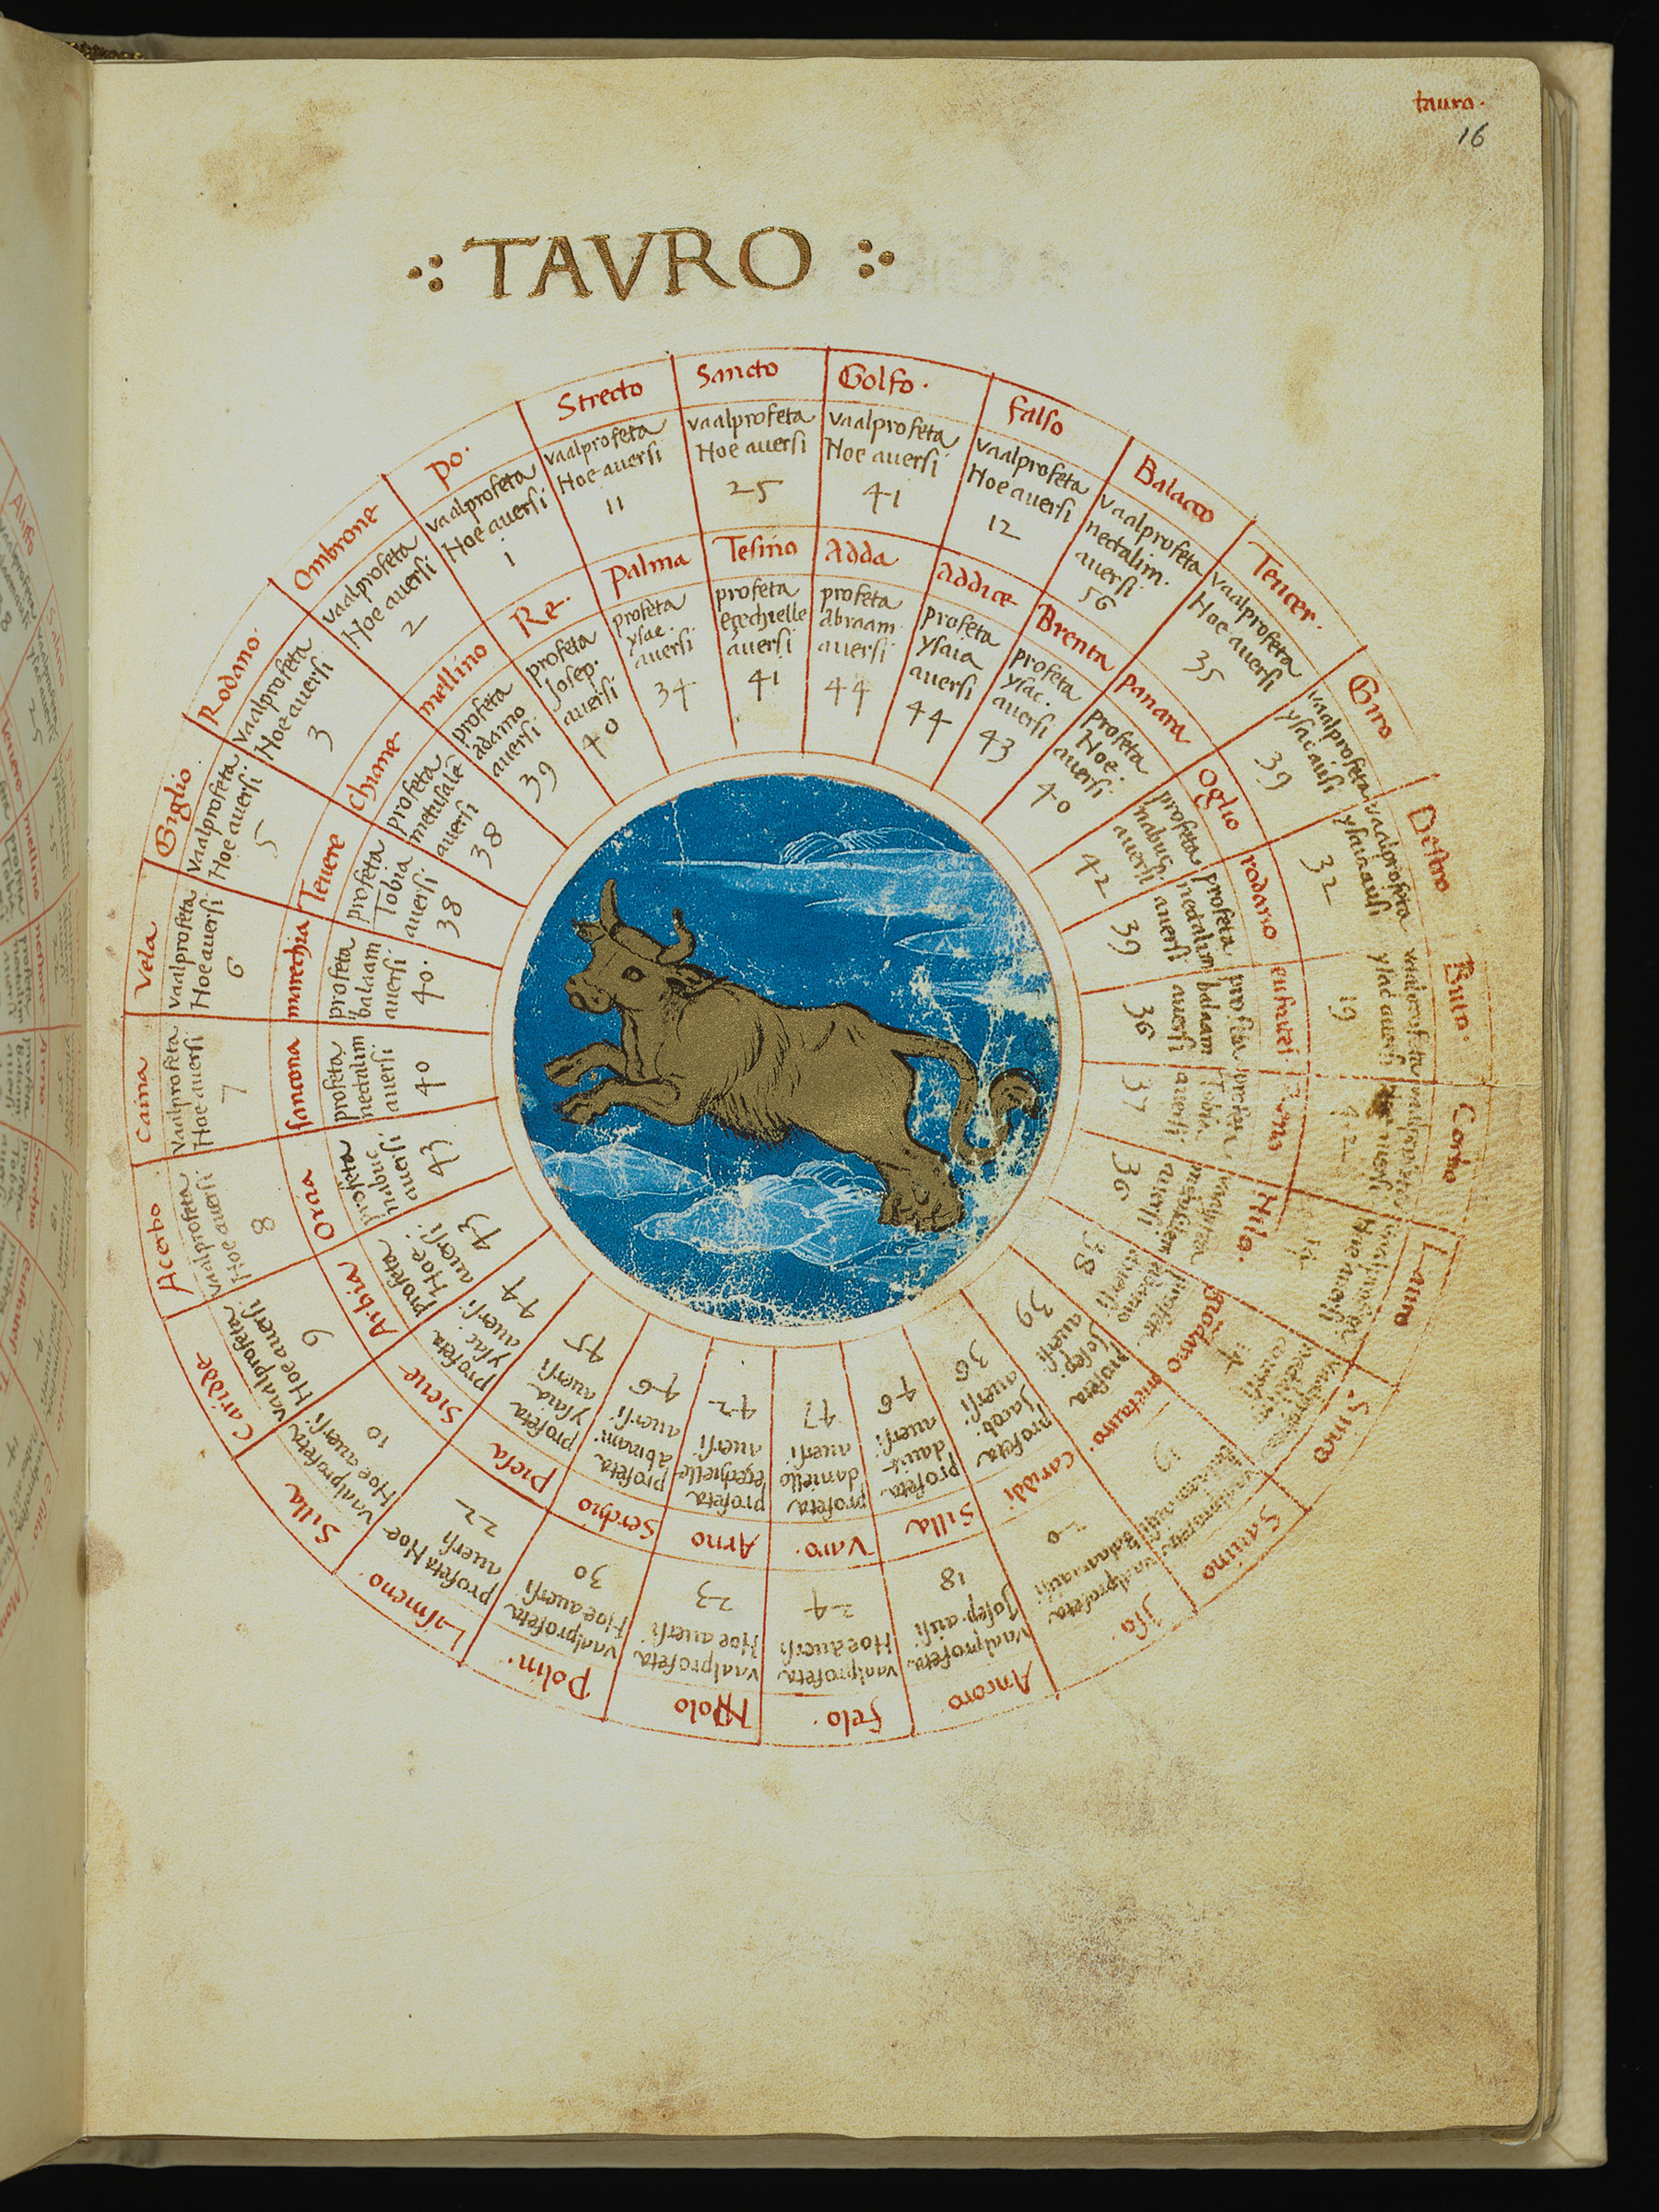 tauro.
16
TAVRO
Strecto
vaalprofeta
Hoe auersi
11
Sancto
vaalprofeta
Hoe auersi
25
Golfo.
vaalprofeta
Hoe auersi
41
falso
vaalprofeta
Hoe auersi
12
Balacco
vaalprofeta
nectalim.
auersi
56
Teucer.
vaalprofeta
Hoe auersi
35
Giro
vaalprofeta
ysac ausi
39
Destro
vaalprofeta
ysaia ausi
32
Buio.
vaalprofeta
ysac auersi
19
Corbo
Lauro
Hoe auersi
Sauro
Sanino
19
Iso.
vaalprofeta
Ancoro
vaalprofeta
Josep ausi
18
felo.
vaalprofeta
Hoe auersi
24
Nolo
vaalprofeta
Hoe auersi
23
Polin.
vaalprofeta
Hoe auersi
30
Lismeno.
profeta Hoe
auersi
22
Silla
vaalprofeta
Hoe auersi
10
Caridde
vaalprofeta
Hoe auersi
9
Acerbo
vaalprofeta
Hoe auersi
8
Caina
vaalprofeta
Hoe auersi
7
Vela
vaalprofeta
Hoe auersi
6
Giglio
vaalprofeta
Hoe auersi
5
Rodano.
vaalprofeta
Hoe auersi
3
Ombrone
vaalprofeta
Hoe auersi
2
Po.
vaalprofeta
Hoe auersi
1
Palma
profeta
ysac.
auersi
34
Tesino
profeta
egechielle
auersi
41
Adda
profeta
abraam
auersi
44
Addice
profeta
ysaia
auersi
44
Brenta
profeta
ysac.
auersi
43
panara
profeta
Hoe.
auersi
40
Oglio
profeta
nabuc
auersi
42
rodano
profeta
nectalim
auersi
39
eufratei
profeta
balaam
auersi
36
profeta
Tobia
auersi
37
Nilo.
auersi
36
giordano
profeta
adamo
auersi
38
mitauro.
profeta
Josep.
auersi
39
Cariddi
profeta
Jacob.
auersi
36
Silla
profeta
dauit
auersi
46
Varo.
profeta
daniello
auersi
47
Arno
profeta
egechielle
auersi
42
Serchio
profeta
abraam
auersi
46
Piesa
profeta
ysaia
auersi
45
Sieue
profeta
ysac
auersi
44
Arbia
profeta
Hoe
auersi
43
Orcia
profeta
nabuc
auersi
43
sancona
profeta
nectalim
auersi
40
marechia
profeta
balaam
auersi
40.
Teuere
profeta
Tobia
auersi
38
Chiane
profeta
metusale
auersi
38
mellino
profeta
adamo
auersi
39
Re.
profeta
Josep.
auersi
40